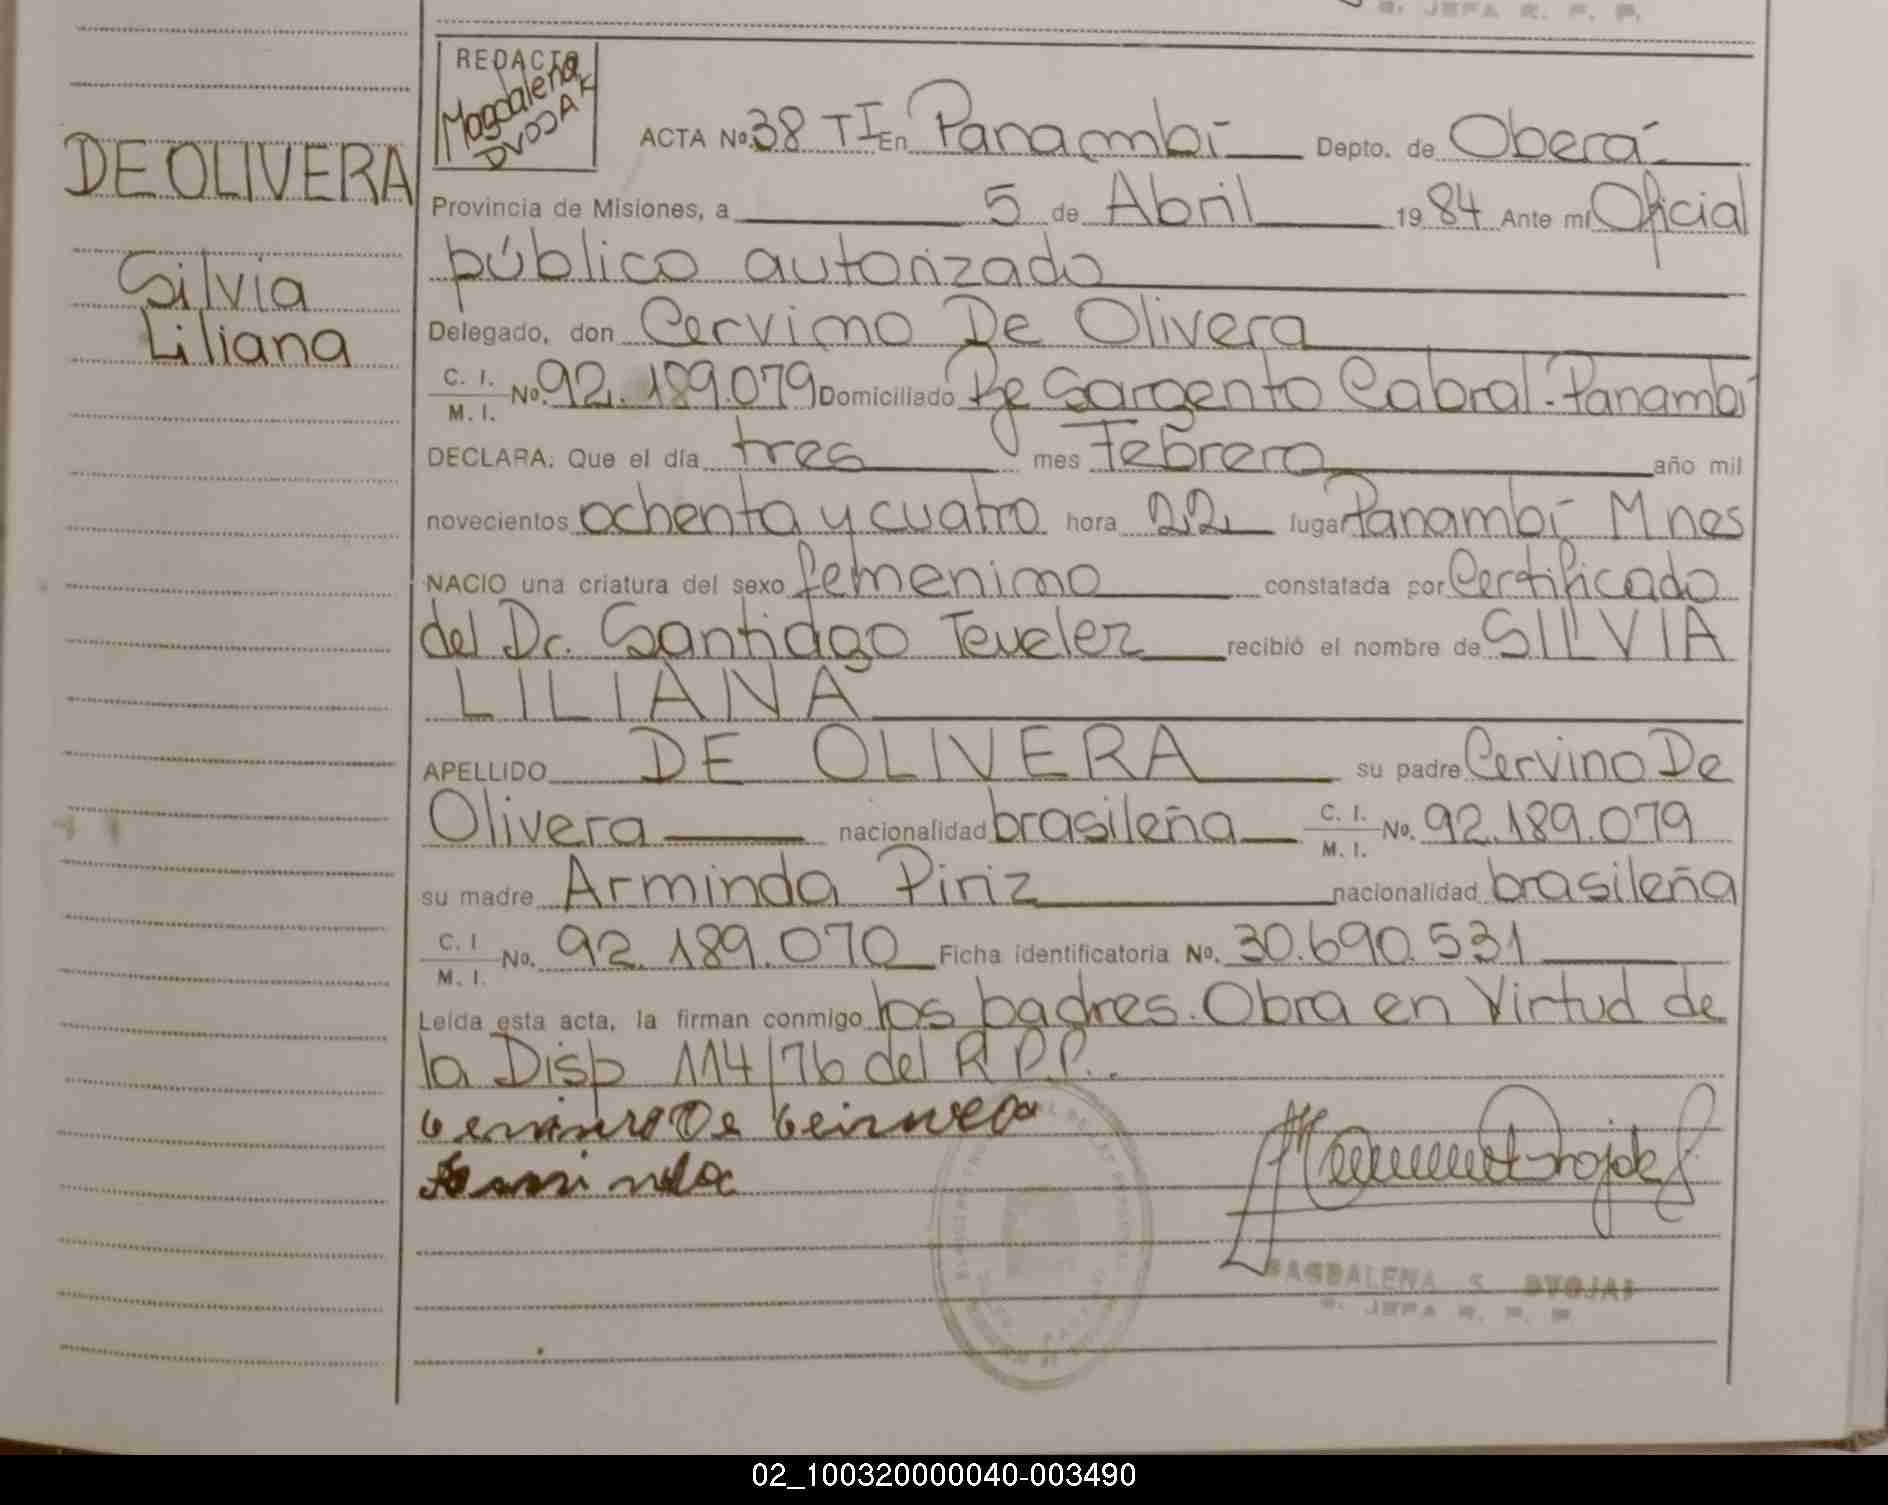 S. JEFA R. P. P.
REDACTO
Magdalena
DVOJAK
DE OLIVERA
Silvia
Liliana
ACTA Nº 38 TI En Panambí Depto. de Oberá
Provincia de Misiones, a 5 de Abril 19 84 Ante mí Oficial
público autorizado
Delegado, don Cervino De Olivera
C. I.
M. I. Nº. 92.189.079 Domiciliado Pje Sargento Cabral - Panambí
DECLARA: Que el día tres mes Febrero año mil
novecientos ochenta y cuatro hora 22 lugar Panambí Mnes
NACIO una criatura del sexo femenino constatada por Certificado
del Dr. Santiago Teveler recibió el nombre de SILVIA
LILIANA
APELLIDO DE OLIVERA su padre Cervino De
Olivera nacionalidad brasileña C. I. M. I. Nº. 92.189.079
su madre Arminda Piriz nacionalidad brasileña
C. I M. I. Nº. 92.189.070 Ficha identificatoria Nº. 30.690.531
Leída esta acta, la firman conmigo los padres. Obra en Virtud de
la Disp 114/76 del R.P.P..
MAGDALENA S. DVOJAK
S. JEFA R. P. P.
02_100320000040-003490